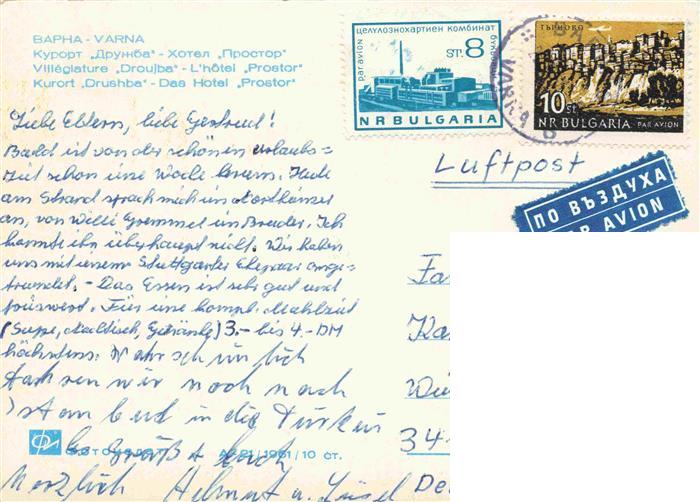 ВАРНА - VARNA
Курорт „Дружба" - Хотел „Простор"
Villégiature „Droujba" - L'hôtel „Prostor"
Kurort „Drushba" - Das Hotel „Prostor"
par avion
целулознохартиен комбинат
ST. 8
NR BULGARIA
ТЪРНОВО
10 st
NR BULGARIA PAR AVION
Luftpost
ПО ВЪЗДУХА
PAR AVION
Liebe Eltern, liebe Gertrud!
Bald ist von der schönen Urlaubs=
zeit schon eine Woche herum. Heute
am Strand sprach mich ein
an, von Willi ein Bruder. Ich
kannte ihn überhaupt nicht. Wir haben
uns mit einem Stuttgarter Ehepaar ange=
freundet. - Das Essen ist sehr gut und
preiswert. Für eine kompl. Mahlzeit
(Suppe, Getränke) 3.- bis 4.- DM
höchstens. Wahrscheinlich
wir noch nach
Istanbul in die Türkei
Es Grüßt euch
Herzlich Helmut u.
Fa
Ka
34
De
ФОТОИЗДАТ 1961/10 ст.